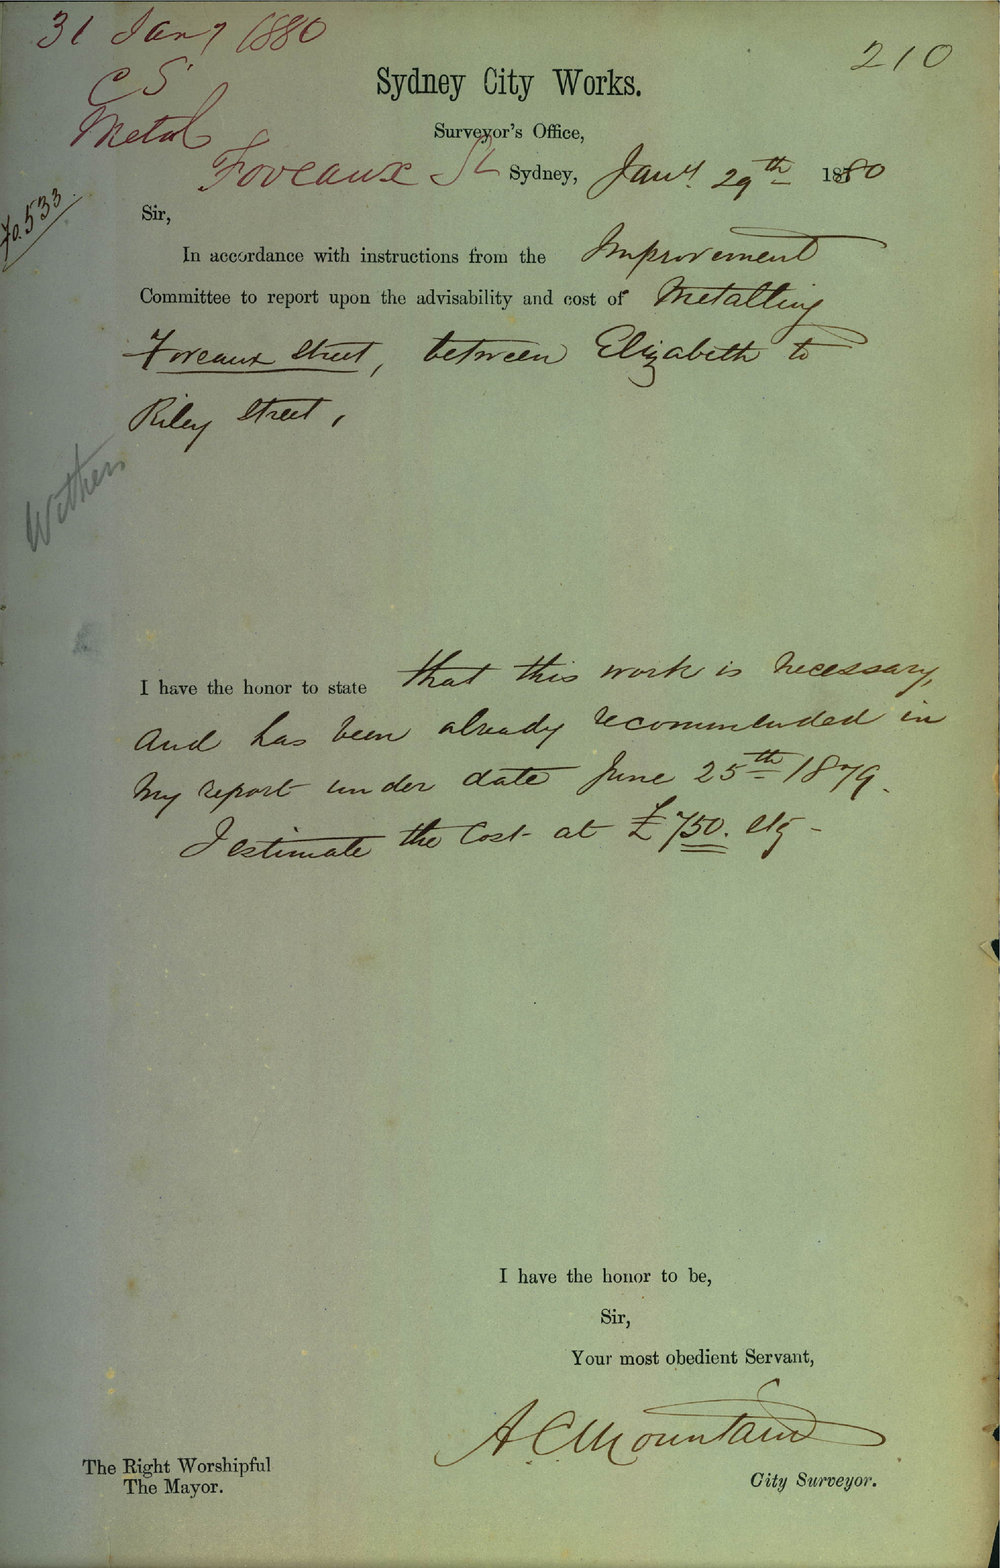 31 Jany 1880
210
C S
Metal
Foveaux St
Sydney City Works.
Surveyor's Office,
Sydney, Jany 29th 1880
Fo. 533
Sir,
In accordance with instructions from the Improvement
Committee to report upon the advisability and cost of Metalling
Foveaux Street, between Elizabeth to
Riley Street,
Withers
I have the honor to state that this work is necessary,
and has been already recommended in
my report under date June 25th 1879.
I estimate the Cost at £750.
I have the honor to be,
Sir,
Your most obedient Servant,
A. C. Mountain
City Surveyor.
The Right Worshipful
The Mayor.